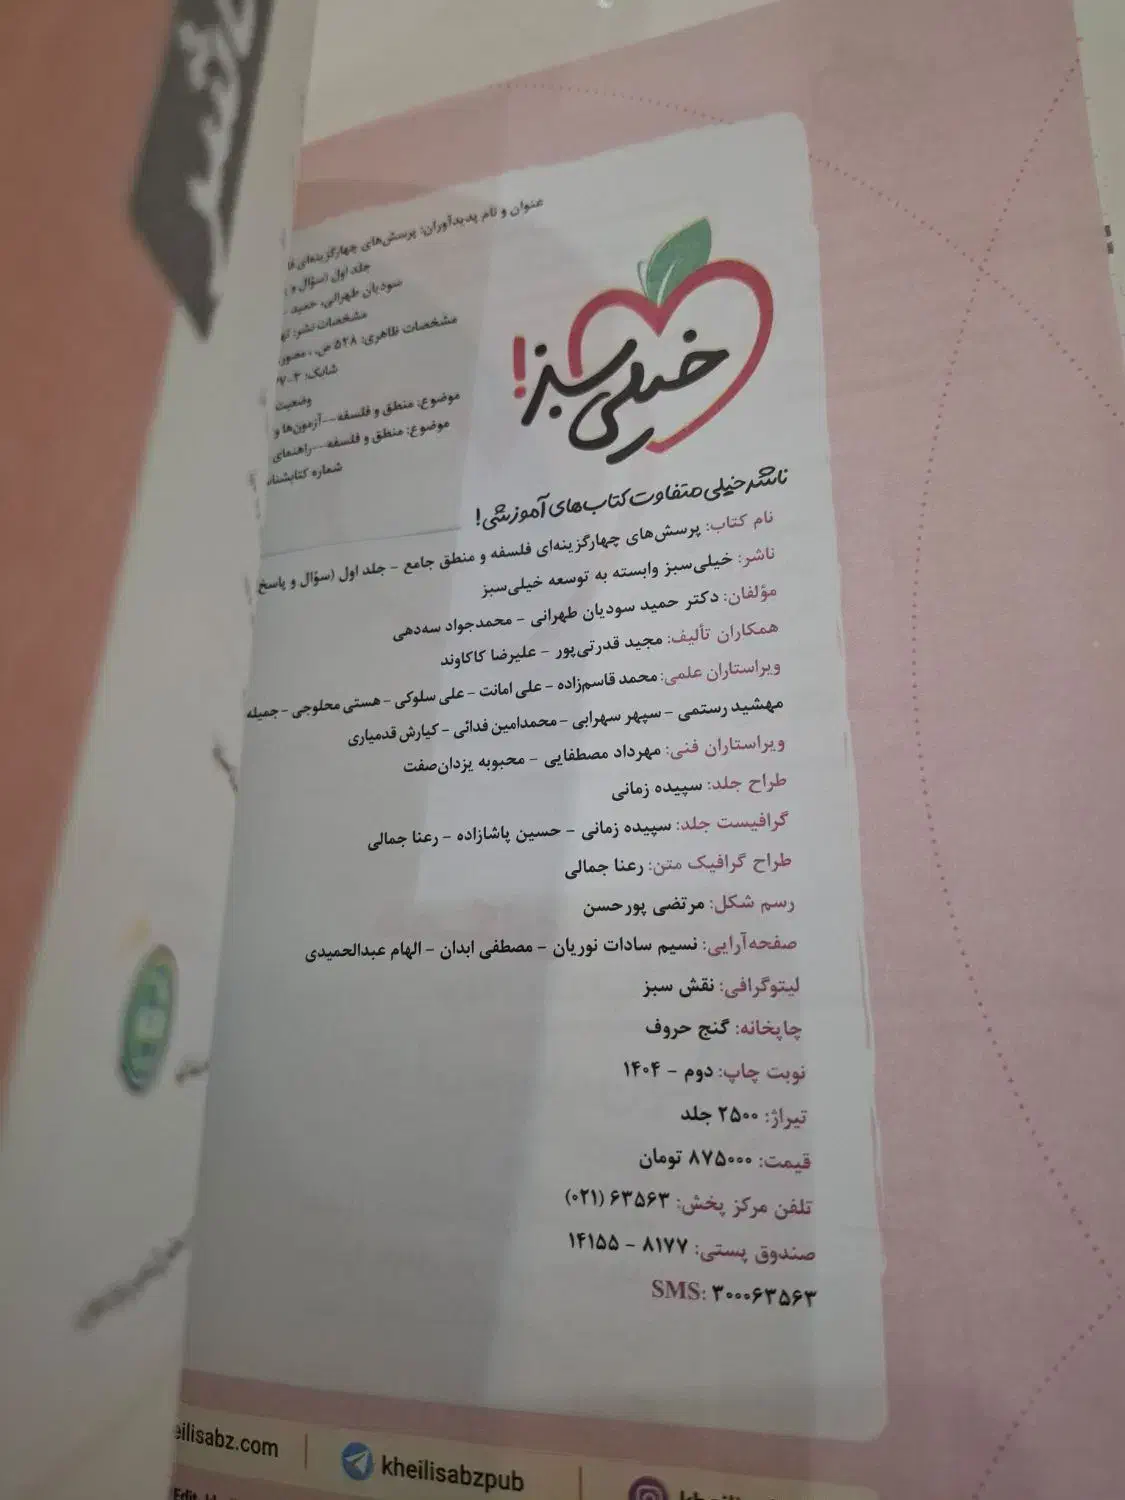 عنوان و نام پدیدآوران: پرسش‌های چهارگزینه‌ای
جلد اول (سؤال و
سودیان طهرانی، حمید
مشخصات نشر:
مشخصات ظاهری: ۵۲۸ ص.، مصور
شابک:
وضعیت
موضوع: منطق و فلسفه--آزمون‌ها و
موضوع: منطق و فلسفه--راهنمای
شماره
خیلی سبز!
ناشر خیلی متفاوت کتاب‌های آموزشی!
نام کتاب: پرسش‌های چهارگزینه‌ای فلسفه و منطق جامع - جلد اول (سؤال و پاسخ
ناشر: خیلی‌سبز وابسته به توسعه خیلی‌سبز
مؤلفان: دکتر حمید سودیان طهرانی - محمدجواد سه‌دهی
همکاران تألیف: مجید قدرتی‌پور - علیرضا کاکاوند
ویراستاران علمی: محمد قاسم‌زاده - علی امانت - علی سلوکی - هستی محلوجی - جمیله
مهشید رستمی - سپهر سهرابی - محمدامین فدائی - کیارش قدمیاری
ویراستاران فنی: مهرداد مصطفایی - محبوبه یزدان‌صفت
طراح جلد: سپیده زمانی
گرافیست جلد: سپیده زمانی - حسین پاشازاده - رعنا جمالی
طراح گرافیک متن: رعنا جمالی
رسم شکل: مرتضی پورحسن
صفحه‌آرایی: نسیم سادات نوریان - مصطفی ابدان - الهام عبدالحمیدی
لیتوگرافی: نقش سبز
چاپخانه: گنج حروف
نوبت چاپ: دوم - ۱۴۰۴
تیراژ: ۲۵۰۰ جلد
قیمت: ۸۷۵۰۰۰ تومان
تلفن مرکز پخش: ۶۳۵۶۳ (۰۲۱)
صندوق پستی: ۸۱۷۷ - ۱۴۱۵۵
SMS: ۳۰۰۰۶۳۵۶۳
eilisabz.com
kheilisabzpub